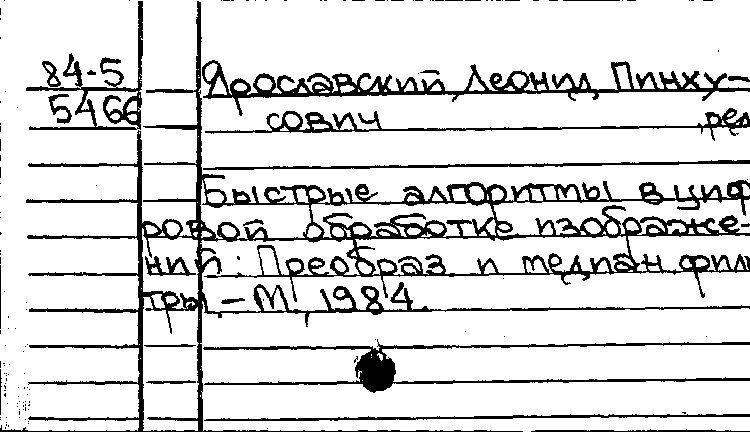 84-5 Ярославский, Леонид Пинху-
5466 сович, ред
Быстрые алгоритмы в циф
ровой обработке изображе-
ний: Преобраз. и медиан. филь
тры. – М., 1984.